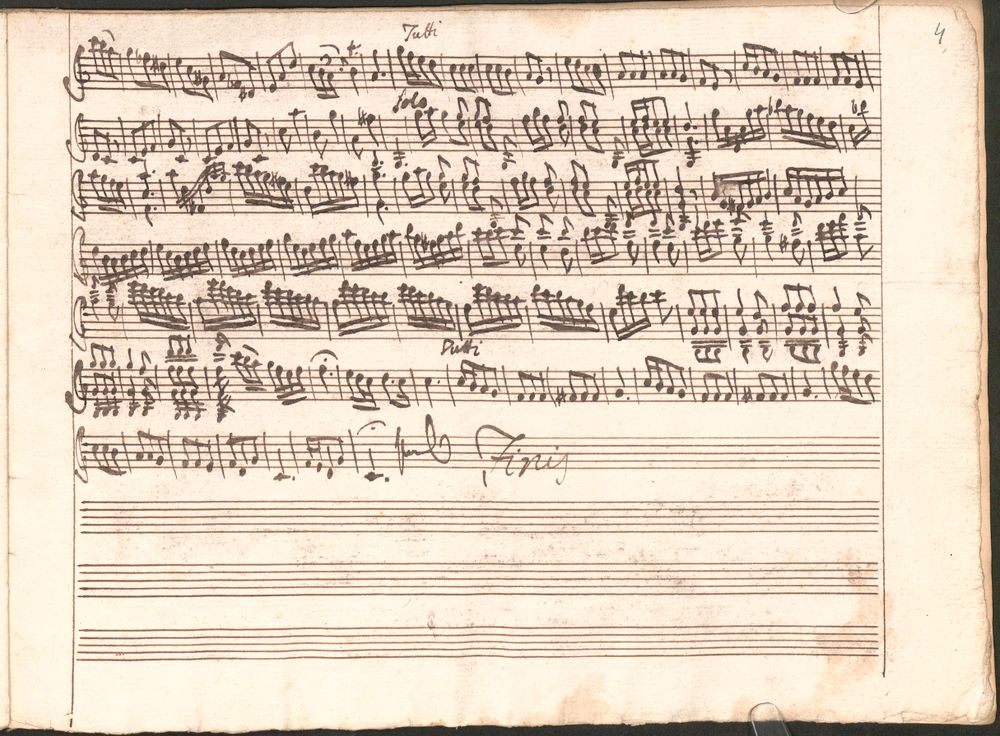 4
Tutti
Solo
Tutti
Finis